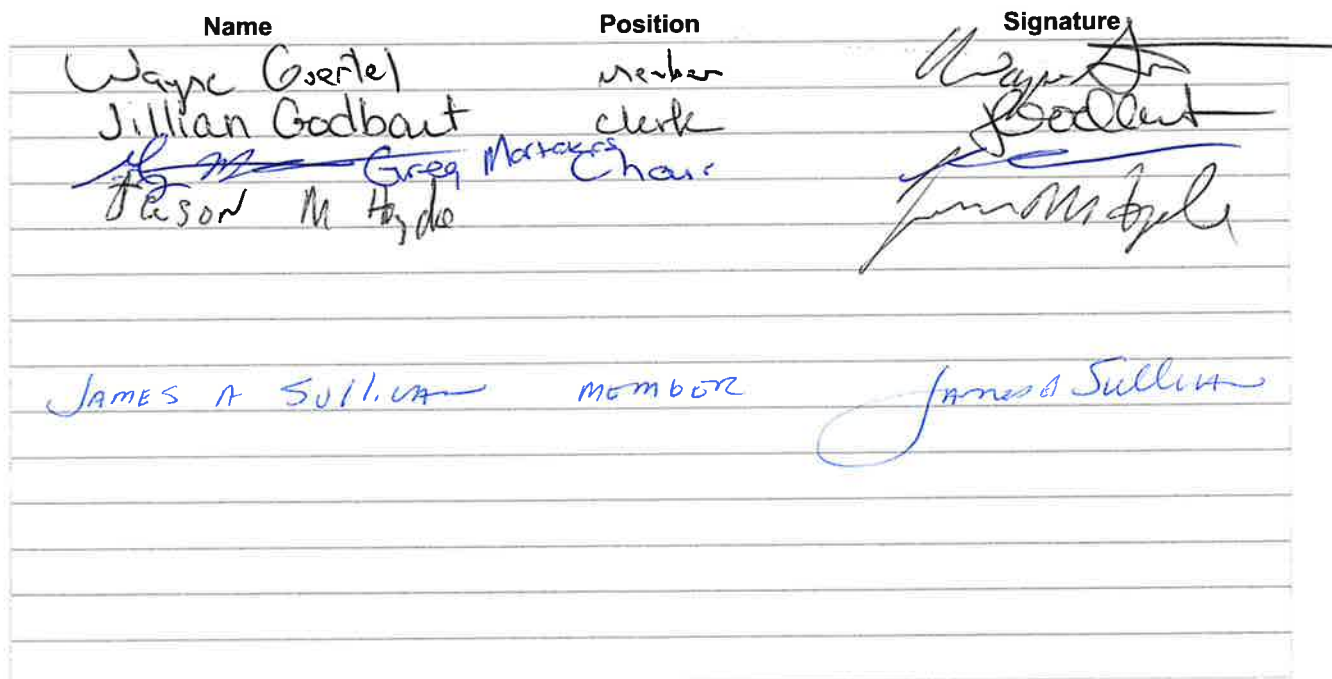 Name Position Signature
Wayne Gsertel member Wayne
Jillian Godbout clerk JGodbout
Greg Chair
Jason M Hyde Jason M Hyde
JAMES A SULLIVAN MEMBER James A Sullivan